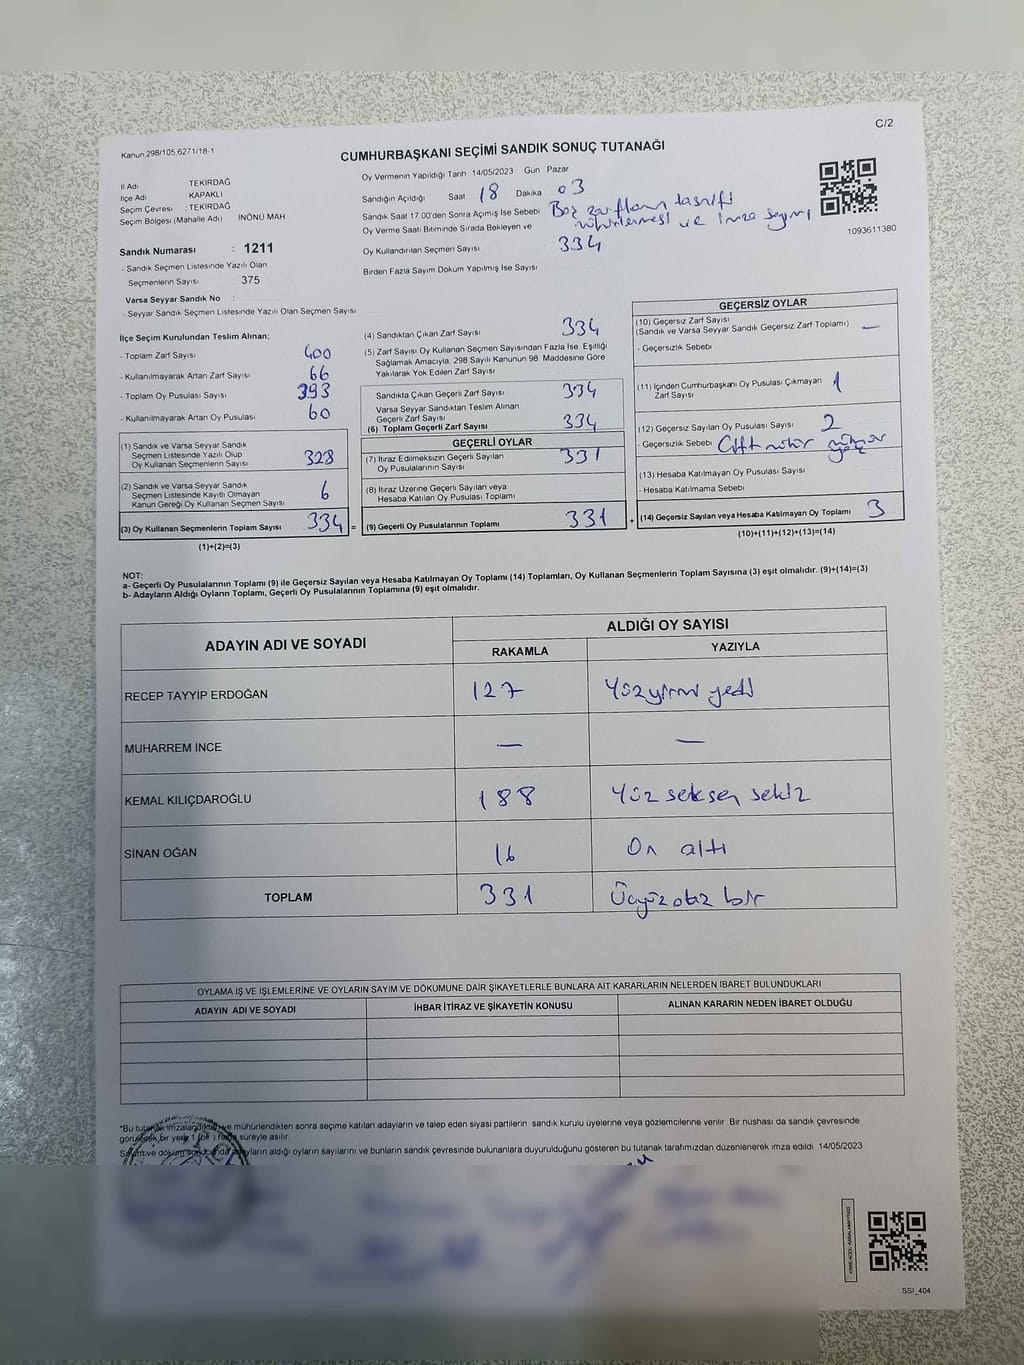 C/2
Kanun 298/105,6271/18-1
CUMHURBAŞKANI SEÇİMİ SANDIK SONUÇ TUTANAĞI
İl Adı TEKİRDAĞ
İlçe Adı KAPAKLI
Seçim Çevresi : TEKİRDAĞ
Seçim Bölgesi (Mahalle Adı) İNÖNÜ MAH
Sandık Numarası : 1211
- Sandık Seçmen Listesinde Yazılı Olan
Seçmenlerin Sayısı : 375
Varsa Seyyar Sandık No :
- Seyyar Sandık Seçmen Listesinde Yazılı Olan Seçmen Sayısı
Oy Vermenin Yapıldığı Tarih :14/05/2023 Gün : Pazar
Sandığın Açıldığı Saat 18 Dakika 03
Sandık Saat 17:00'den Sonra Açılmış İse Sebebi Boş zarfların tasnifi
mühürlenmesi ve imza sayımı
Oy Verme Saati Bitiminde Sırada Bekleyen ve
Oy Kullandırılan Seçmen Sayısı 334
Birden Fazla Sayım Döküm Yapılmış İse Sayısı
1093611380
İlçe Seçim Kurulundan Teslim Alınan;
- Toplam Zarf Sayısı 400
- Kullanılmayarak Artan Zarf Sayısı 66
- Toplam Oy Pusulası Sayısı 393
- Kullanılmayarak Artan Oy Pusulası 60
(1) Sandık ve Varsa Seyyar Sandık
Seçmen Listesinde Yazılı Olup
Oy Kullanan Seçmenlerin Sayısı 328
(2) Sandık ve Varsa Seyyar Sandık
Seçmen Listesinde Kayıtlı Olmayan
Kanun Gereği Oy Kullanan Seçmen Sayısı 6
(3) Oy Kullanan Seçmenlerin Toplam Sayısı 334 =
(1)+(2)=(3)
(4) Sandıktan Çıkan Zarf Sayısı 334
(5) Zarf Sayısı Oy Kullanan Seçmen Sayısından Fazla İse, Eşitliği
Sağlamak Amacıyla, 298 Sayılı Kanunun 98. Maddesine Göre
Yakılarak Yok Edilen Zarf Sayısı
Sandıkta Çıkan Geçerli Zarf Sayısı 334
Varsa Seyyar Sandıktan Teslim Alınan
Geçerli Zarf Sayısı
(6) Toplam Geçerli Zarf Sayısı 334
GEÇERLİ OYLAR
(7) İtiraz Edilmeksizin Geçerli Sayılan
Oy Pusulalarının Sayısı 331
(8) İtiraz Üzerine Geçerli Sayılan veya
Hesaba Katılan Oy Pusulası Toplamı
(9) Geçerli Oy Pusulalarının Toplamı 331 +
GEÇERSİZ OYLAR
(10) Geçersiz Zarf Sayısı
(Sandık ve Varsa Seyyar Sandık Geçersiz Zarf Toplamı) —
- Geçersizlik Sebebi
(11) İçinden Cumhurbaşkanı Oy Pusulası Çıkmayan
Zarf Sayısı 1
(12) Geçersiz Sayılan Oy Pusulası Sayısı 2
- Geçersizlik Sebebi Çift mühür mühür
yok
(13) Hesaba Katılmayan Oy Pusulası Sayısı
- Hesaba Katılmama Sebebi
(14) Geçersiz Sayılan veya Hesaba Katılmayan Oy Toplamı 3
(10)+(11)+(12)+(13)=(14)
NOT:
a- Geçerli Oy Pusulalarının Toplamı (9) ile Geçersiz Sayılan veya Hesaba Katılmayan Oy Toplamı (14) Toplamları, Oy Kullanan Seçmenlerin Toplam Sayısına (3) eşit olmalıdır. (9)+(14)=(3)
b- Adayların Aldığı Oyların Toplamı, Geçerli Oy Pusulalarının Toplamına (9) eşit olmalıdır.
ADAYIN ADI VE SOYADI
ALDIĞI OY SAYISI
RAKAMLA YAZIYLA
RECEP TAYYİP ERDOĞAN 127 Yüzyirmi yedi
MUHARREM İNCE — —
KEMAL KILIÇDAROĞLU 188 Yüz seksen sekiz
SİNAN OĞAN 16 On altı
TOPLAM 331 Üçyüz otuz bir
OYLAMA İŞ VE İŞLEMLERİNE VE OYLARIN SAYIM VE DÖKÜMÜNE DAİR ŞİKAYETLERLE BUNLARA AİT KARARLARIN NELERDEN İBARET BULUNDUKLARI
ADAYIN ADI VE SOYADI İHBAR İTİRAZ VE ŞİKAYETİN KONUSU ALINAN KARARIN NEDEN İBARET OLDUĞU
*Bu tutanak imzalandıktan ve mühürlendikten sonra seçime katılan adayların ve talep eden siyasi partilerin sandık kurulu üyelerine veya gözlemcilerine verilir. Bir nüshası da sandık çevresinde
görülecek bir yere 1 (bir) hafta süreyle asılır.
Sayım ve döküm sonucunda adayların aldığı oyların sayılarını ve bunların sandık çevresinde bulunanlara duyurulduğunu gösteren bu tutanak tarafımızdan düzenlenerek imza edildi. 14/05/2023
SSI_404